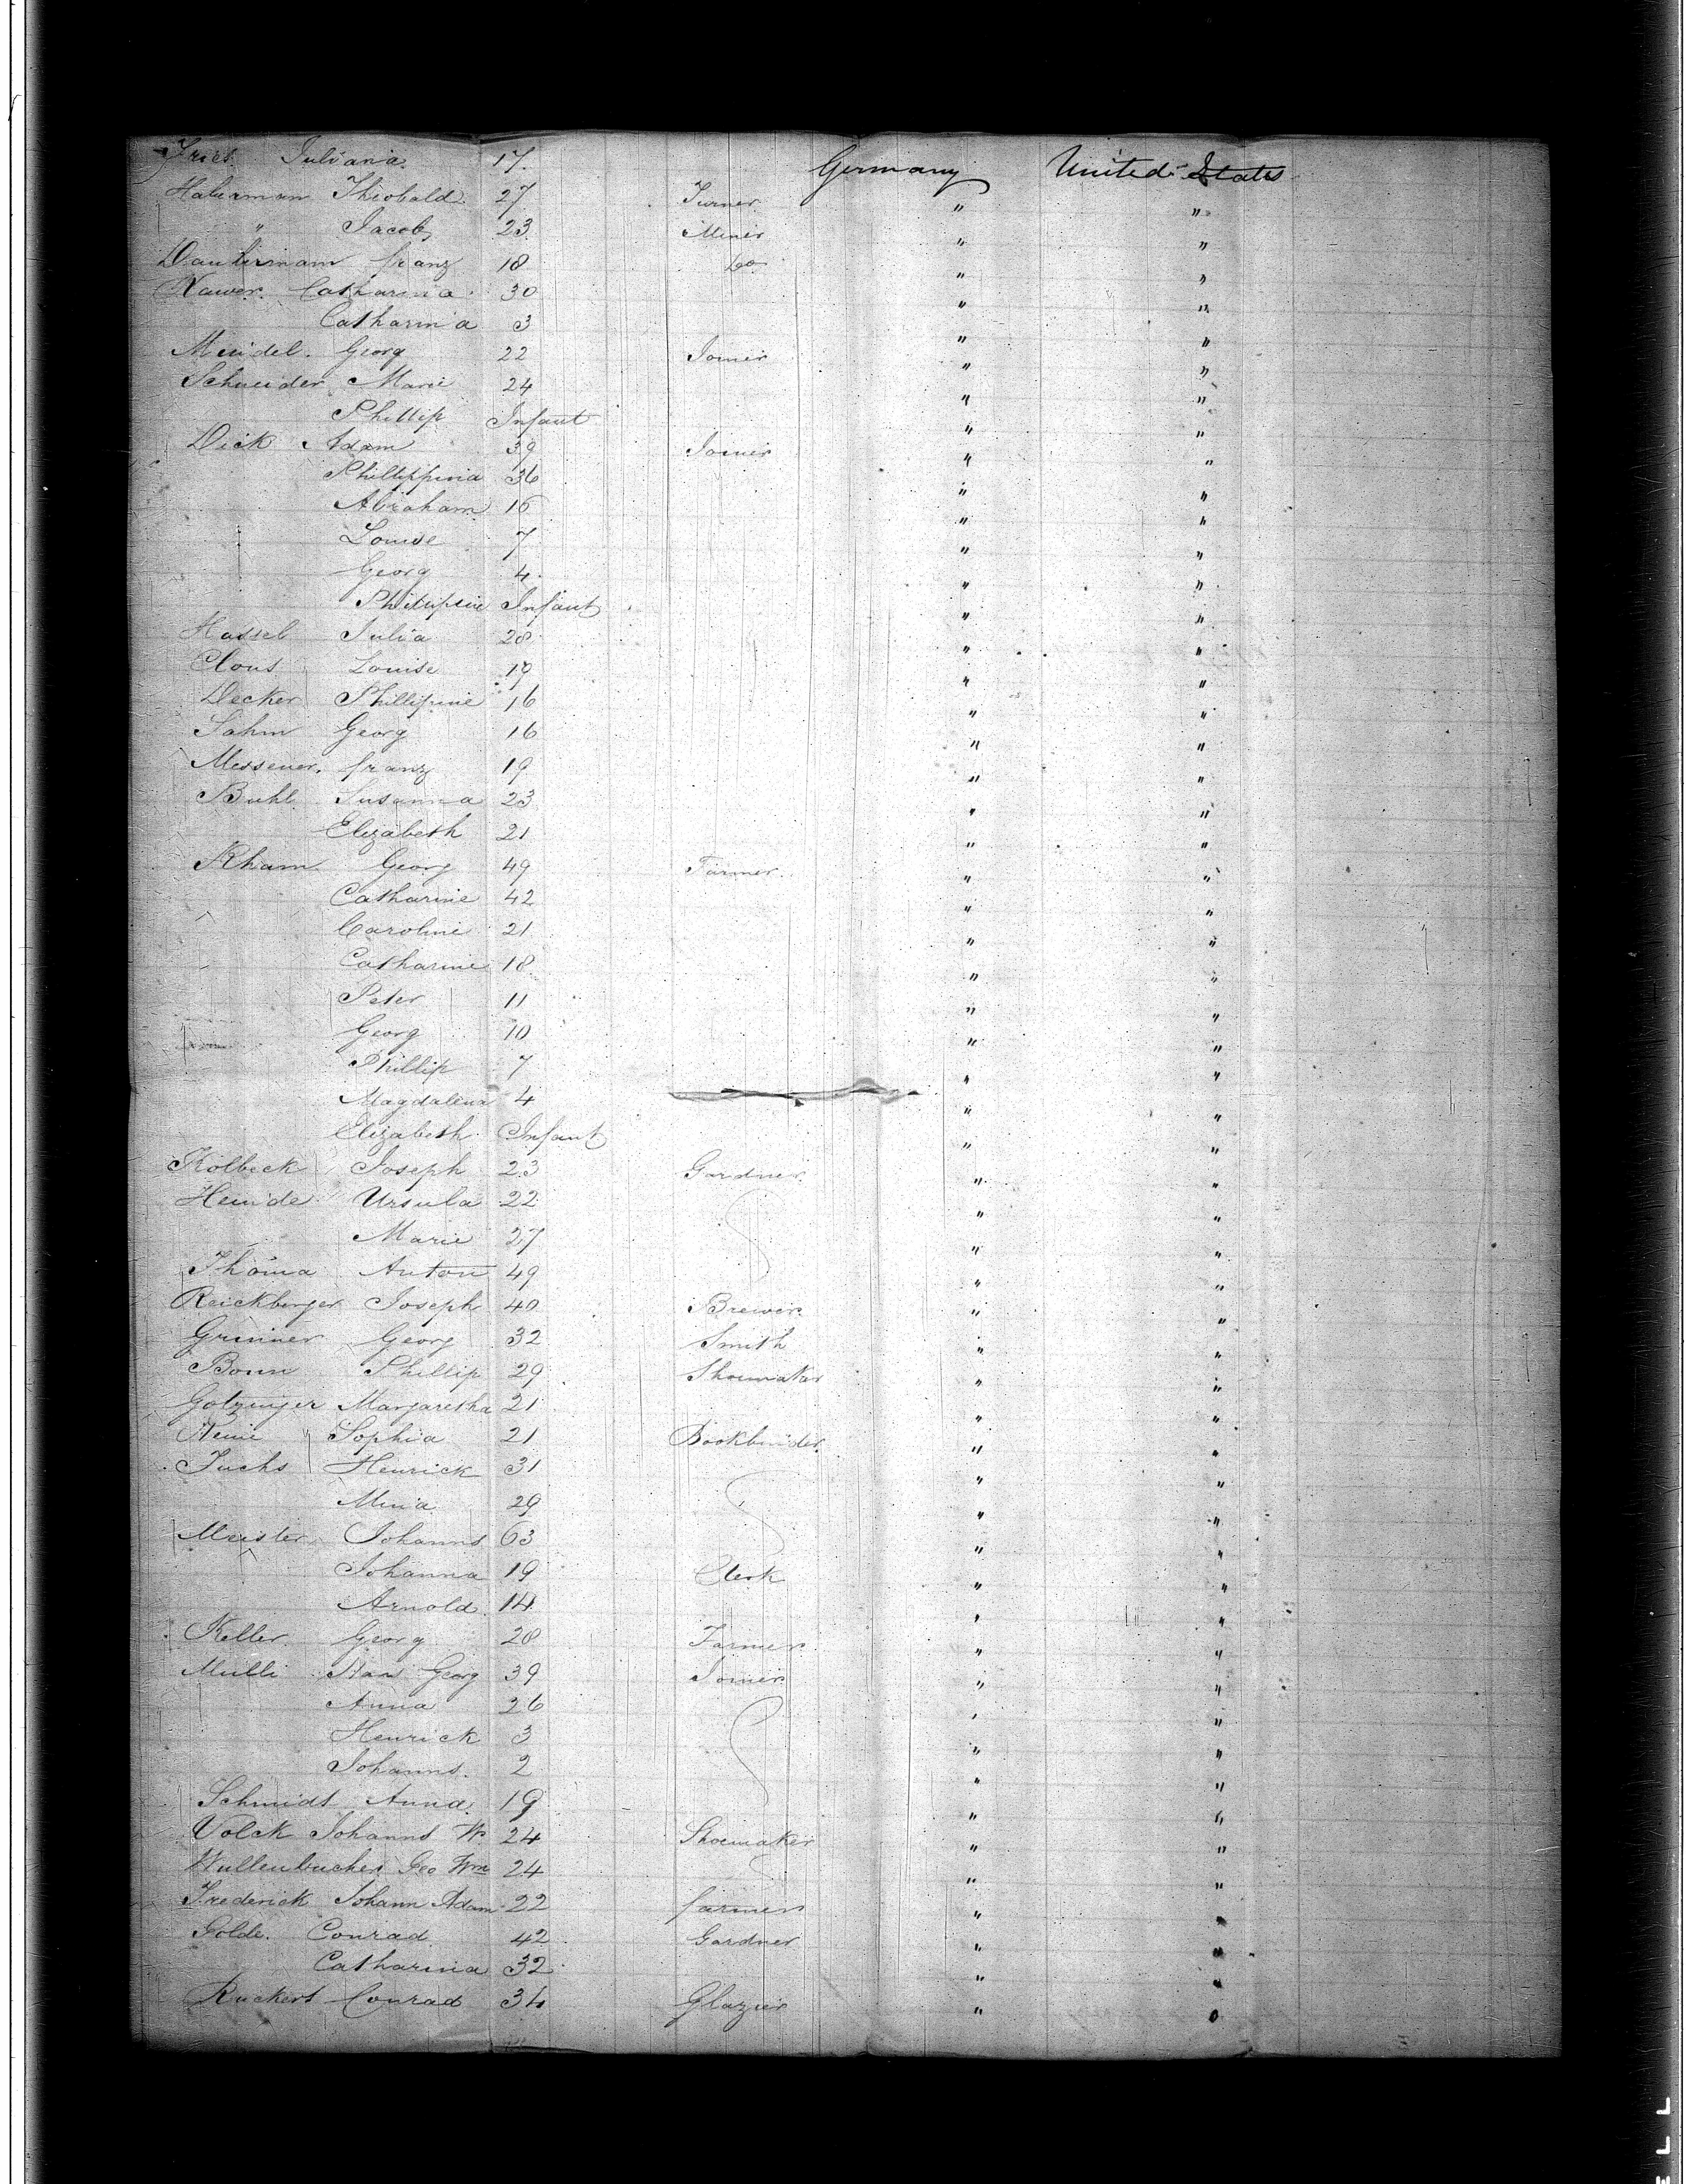 Fries Juliana 17. Germany United States
Haberman Theobald 27 Turner " "
" Jacob 23 Miner " "
Dauterman franz 18 Do " "
Kawer. Catharina 30 " "
Catharina 3 " "
Meidel. Georg 22 Joiner " "
Schneider Marie 24 " "
Phillip Infant " "
Dick Adam 39 Joiner " "
Phillippina 36 " "
Abraham 16 " "
Louise 7 " "
Georg 4 " "
Infant " "
Hassel Julia 28 " "
Clous Louise 19 " "
Decker Phillipine 16 " "
Sahm Georg 16 " "
Messener. franz 19 " "
Buhl. Susanna 23 " "
Elizabeth 21 " "
Rham. Georg 49 Farmer " "
Catharine 42 " "
Caroline 21 " "
Catharine 18 " "
Peter 11 " "
Georg 10 " "
Phillip 7 " "
Magdalena 4 " "
Elizabeth Infant " "
Kolbeck Joseph 23 Gardner " "
Heinde Ursula 22 " "
Marie 27 " "
Thoma Anton 49 " "
Reickberger Joseph 40 Brewer " "
Grinner Georg 32 Smith " "
Bonn Phillip 29 Shoemaker " "
Gotzinger Margaretha 21 " "
Sophia 21 Bookbinder " "
Fuchs Henrick 31 " "
Mina 29 " "
Meister Johanns 63 " "
Johanna 19 Clerk " "
Arnold 14 " "
Keller. Georg 28 Farmer " "
Mulli Han Georg 39 Joiner " "
Anna 26 " "
Henrick 3 " "
Johanns. 2 " "
Schmidt Anna 19 " "
Volck Johanns W. 24 Shoemaker " "
Wullenbucher Geo Wm 24 " "
Frederick Johann Adam 22 farmer " "
Golde. Conrad 42 Gardner " "
Catharina 32 " "
Ruckert Conrad 34 Glazier " "